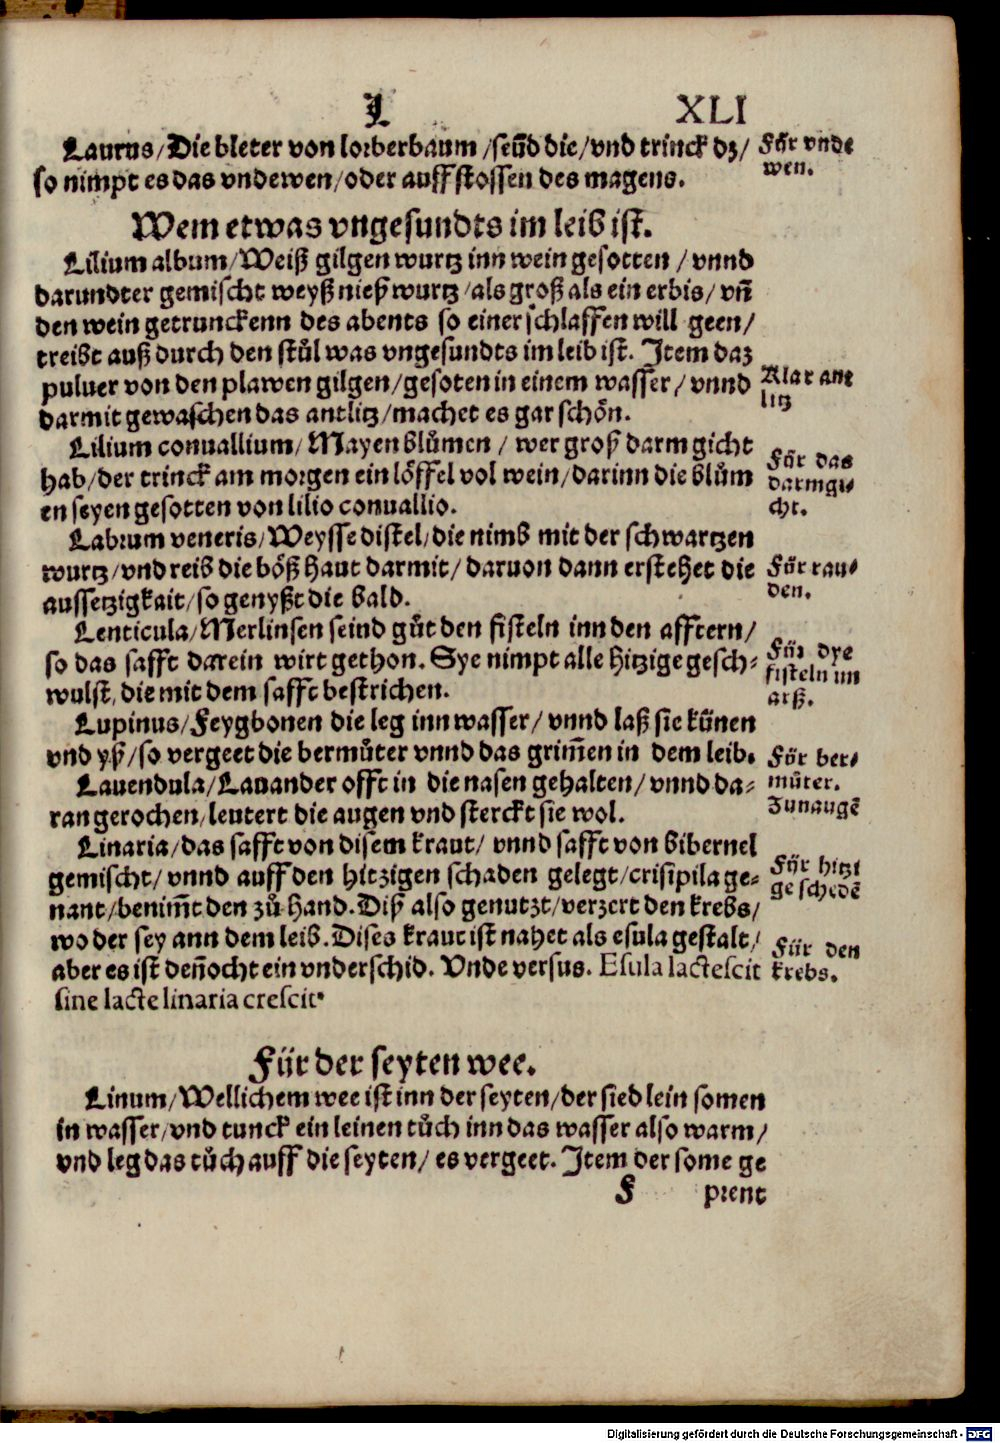 L XLI
Laurus/Die bleter von lorberbaum/seüd die/vnd trinck dz/
so nimpt es das vndewen/oder auffstossen des magens.
Für vnde
wen.
Wem etwas vngesundts im leib ist.
Lilium album/Weiß gilgen wurtz inn wein gesotten/vnnd
darundter gemischt weyß nieß wurtz/als groß als ein erbis/vñ
den wein getrunckenn des abents so einer schlaffen will geen/
treibt auß durch den stůl was vngesundts im leib ist. Item daz
puluer von den plawen gilgen/gesoten in einem wasser/vnnd
darmit gewaschen das antlitz/machet es gar schön.
Klar ant
litz
Lilium conuallium/Mayenblůmen/wer groß darmgicht
hab/der trinck am morgen ein löffel vol wein/darinn die blům
en seyen gesotten von lilio conuallio.
Für das
darmgi-
cht.
Labrum veneris/Weysse distel/die nimb mit der schwartzen
wurtz/vnd reib die böß haut darmit/daruon dann erstehet die
aussetzigkait/so genyßt die bald.
Für rau-
den.
Lenticula/Merlinsen seind gůt den fisteln inn den afftern/
so das safft darein wirt gethon. Sye nimpt alle hitzige gesch-
wulst, die mit dem safft bestrichen.
Für dye
fisteln im
arß.
Lupinus/Feygbonen die leg inn wasser/vnnd laß sie künen
vnd yß/so vergeet die bermůter vnnd das grim̃en in dem leib.
Für ber-
můter.
Lauendula/Lauander offt in die nasen gehalten/vnnd da-
ran gerochen/leutert die augen vnd sterckt sie wol.
Zun augẽ
Linaria/das safft von disem kraut/vnnd safft von bibernel
gemischt/vnnd auff den hitzigen schaden gelegt/crisipila ge-
nant/benim̃t den zů hand. Diß also genutzt/verzert den krebs/
wo der sey ann dem leib. Dises kraut ist nahet als esula gestalt/
aber es ist deñocht ein vnderschid. Vnde versus. Esula lactescit
sine lacte linaria crescit.
Für hitzi
ge schedẽ
Für den
krebs.
Für der seyten wee.
Linum/Wellichem wee ist inn der seyten/der sied lein somen
in wasser/vnd tunck ein leinen tůch inn das wasser also warm/
vnd leg das tůch auff die seyten/es vergeet. Item der some ge
F prent
Digitalisierung gefördert durch die Deutsche Forschungsgemeinschaft - DFG